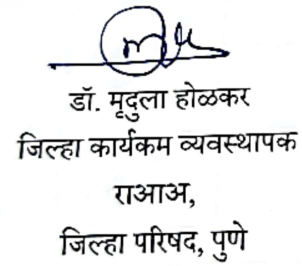 डॉ. मृदुला होळकर
जिल्हा कार्यकम व्यवस्थापक
राआअ,
जिल्हा परिषद, पुणे